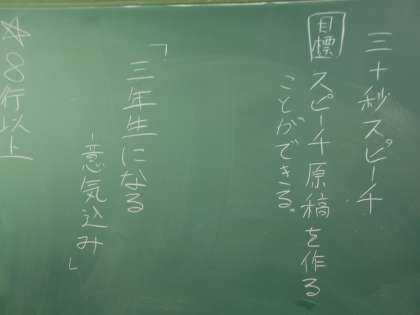 三十秒スピーチ
目標 スピーチ原稿を作る
ことができる。
「三年生になる
-意気込み」
☆8行以上